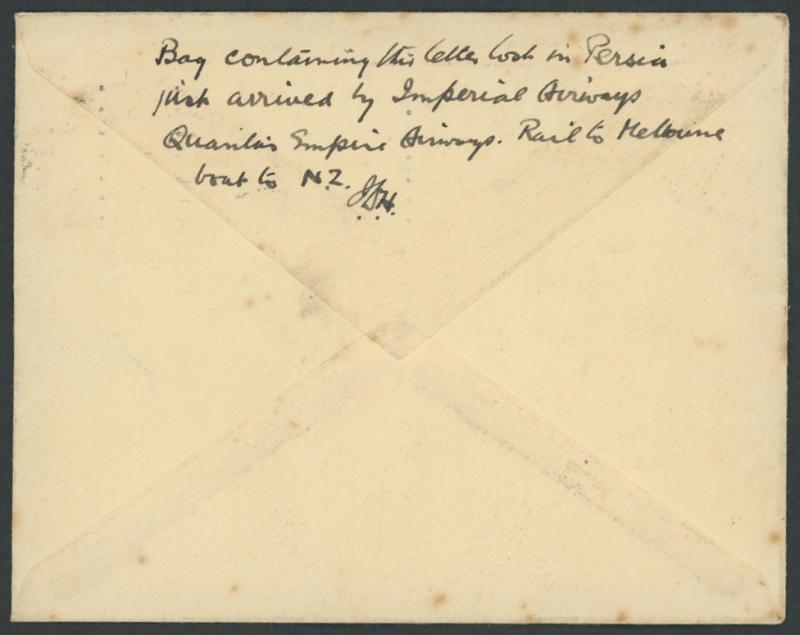 Bag containing this letter lost in Persia
just arrived by Imperial Airways
Quantas Empire Airways. Rail to Melbourne
boat to N.Z.